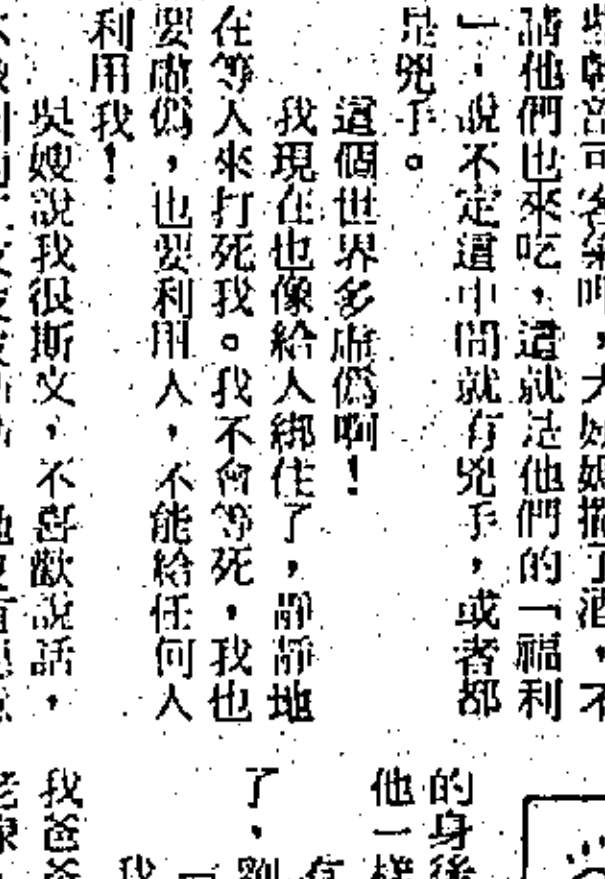 請他們也來吃，這就是他們的「福利
」，說不定這中間就有兇手，或者都
是兇手。
這個世界多虛偽啊！
我現在也像給人綁住了，靜靜地
在等人來打死我。我不會等死，我也
要虛偽，也要利用人，不能給任何人
利用我！
吳嫂說我很斯文，不喜歡說話，
的身後
他一樣
了，
我爸爸